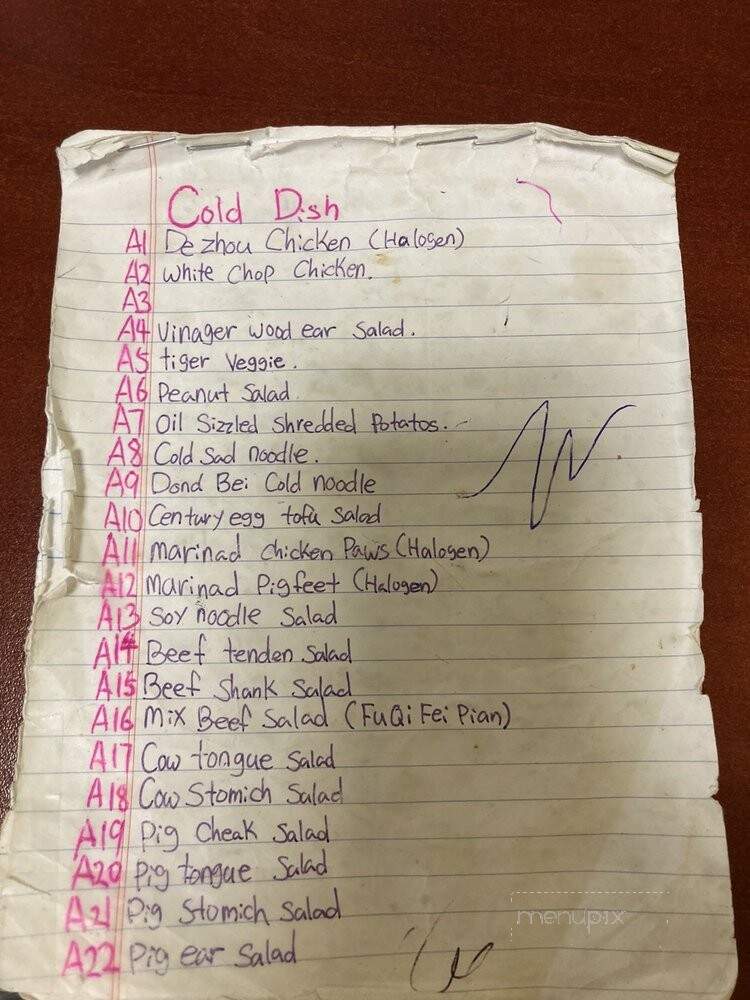 Cold Dish
A1 Dezhou Chicken (Halogen)
A2 White Chop Chicken.
A3
A4 Vinager wood ear Salad.
A5 tiger Veggie.
A6 Peanut Salad.
A7 Oil Sizzled Shredded Potatos.
A8 Cold Sad noodle.
A9 Dond Bei Cold noodle
A10 Century egg tofu Salad
A11 marinad chicken Paws (Halogen)
A12 marinad Pig feet (Halogen)
A13 Soy noodle Salad
A14 Beef tenden Salad
A15 Beef Shank Salad
A16 Mix Beef Salad (FuQi Fei Pian)
A17 Cow tongue Salad
A18 Cow Stomich Salad
A19 Pig Cheak Salad
A20 Pig tongue Salad
A21 Pig Stomich Salad
A22 Pig ear Salad
menupix